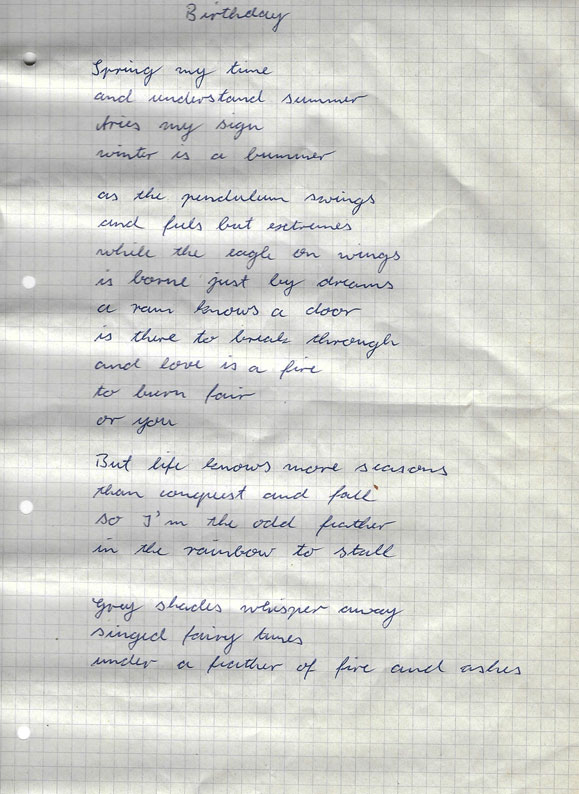 Birthday
Spring my tune
and understand summer
Aries my sign
winter is a bummer
as the pendulum swings
and fuls but extremes
while the eagle on wings
is borne just by dreams
a ram knows a door
is there to break through
and love is a fire
to burn fair
or you
But life knows more seasons
than conquest and fall
so I'm the odd feather
in the rainbow to stall
Grey shades whisper away
singed fairy tunes
under a feather of fire and ashes